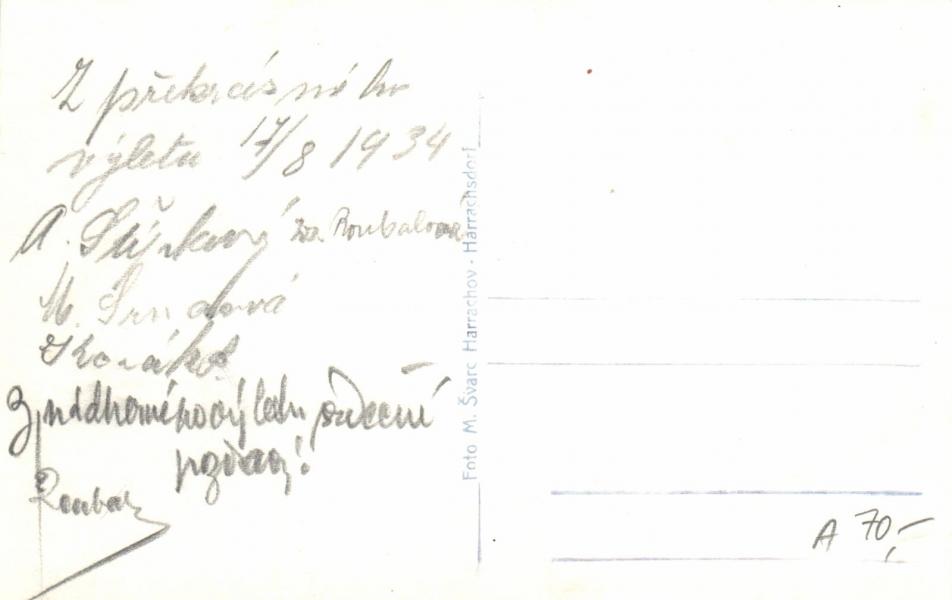 Z překrásného
výletu 17/8 1934
A. Zva. Roubalová
M. Srndová
Z nádherného výletu srdečné
pozdravy!
Roubal
Foto M. Švarc Harrachov - Harrachsdorf
A 70,-